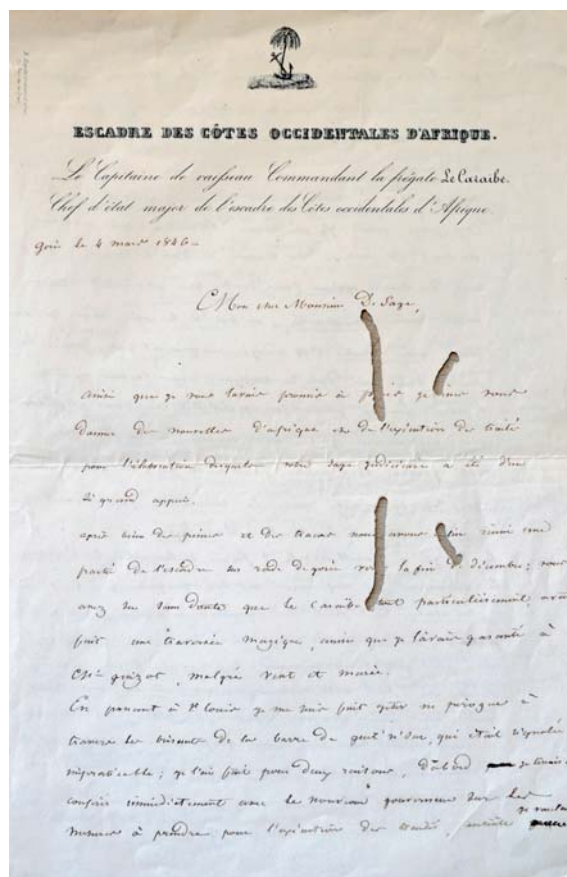 ESCADRE DES CÔTES OCCIDENTALES D'AFRIQUE.
Le Capitaine de vaisseau Commandant la frégate Le Caraïbe.
Chef d'état major de l'escadre des Côtes occidentales d'Afrique.
Gorée le 4 mars 1846
Mon cher Monsieur De Sage,
ainsi que je vous l'avais promis à je vous
donner de nouvelles d'afrique et de l'exécution du traité
pour l'élaboration duquel votre sage a été d'un
si grand appui.
après bien des peines et des tracas nous avons réuni une
partie de l'escadre en rade de gorée vers la fin de décembre; vous
avez su sans doute que le Caraïbe particulièrement avait
fait une traversée magique, ainsi que je l'avais garanti à
Mr guizot, malgré vent et marée.
En passant à St louis je me suis fait jeter en pirogue à
travers les brisants de la barre de guet'n'dar, qui était signalée
impraticable; je l'ai fait pour deux raisons, d'abord je tenais à
conférer immédiatement avec le nouveau gouverneur sur les
mesures à prendre pour l'exécution des traités, ensuite je voulais